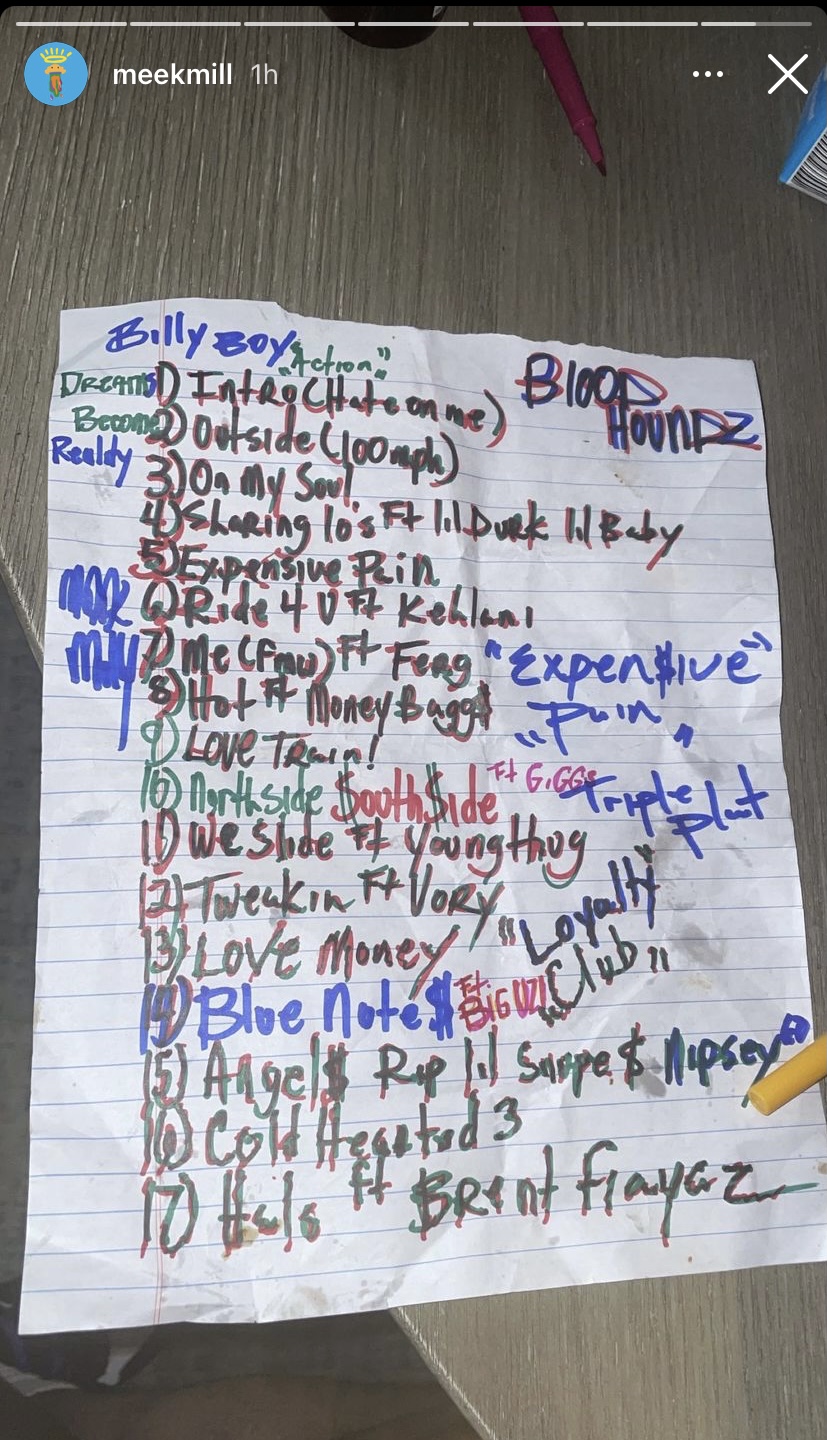 meekmill 1h
Billy Boy "Action"
Blood
Houndz
Dreams 1) Intro (Hate on me)
Become 2) Outside (100mph)
Realdy 3) On My Soul
4) Sharing lo's Ft lil Durk lil Baby
5) Expensive Pain
6) Ride 4 U Ft Kehlani
Meek Milly
7) Me (Fmw) Ft Ferg
"Expen$ive"
8) Hot Ft MoneyBagg$
"Pain"
9) Love Train!
10) Northside $outh$ide Ft GiGGs
Triple Plat
11) We Slide Ft Youngthug
12) Tweakin Ft Vory
"Loyalty"
13) Love Money
"Club"
14) Blue Note$ Ft. BIG UZI
15) Angel$ Rip lil Snupe $ Nipsey
16) Cold Hearted 3
17) Halo ft Brent Fiayaz